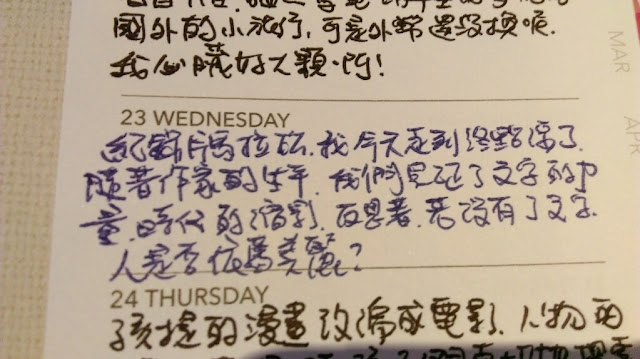 國外的小旅行,可是外幣還沒換喔.
我心臟好大顆.阿!
MAR
APR
23 WEDNESDAY
紀錄片馬拉松.我今天走到終點線了.
隨著作家的生平.我們見証了文字的力
量.時代的縮影.反思著.若沒有了文字.
人是否依舊美麗?
24 THURSDAY
孩提的漫畫改編成電影.人物的